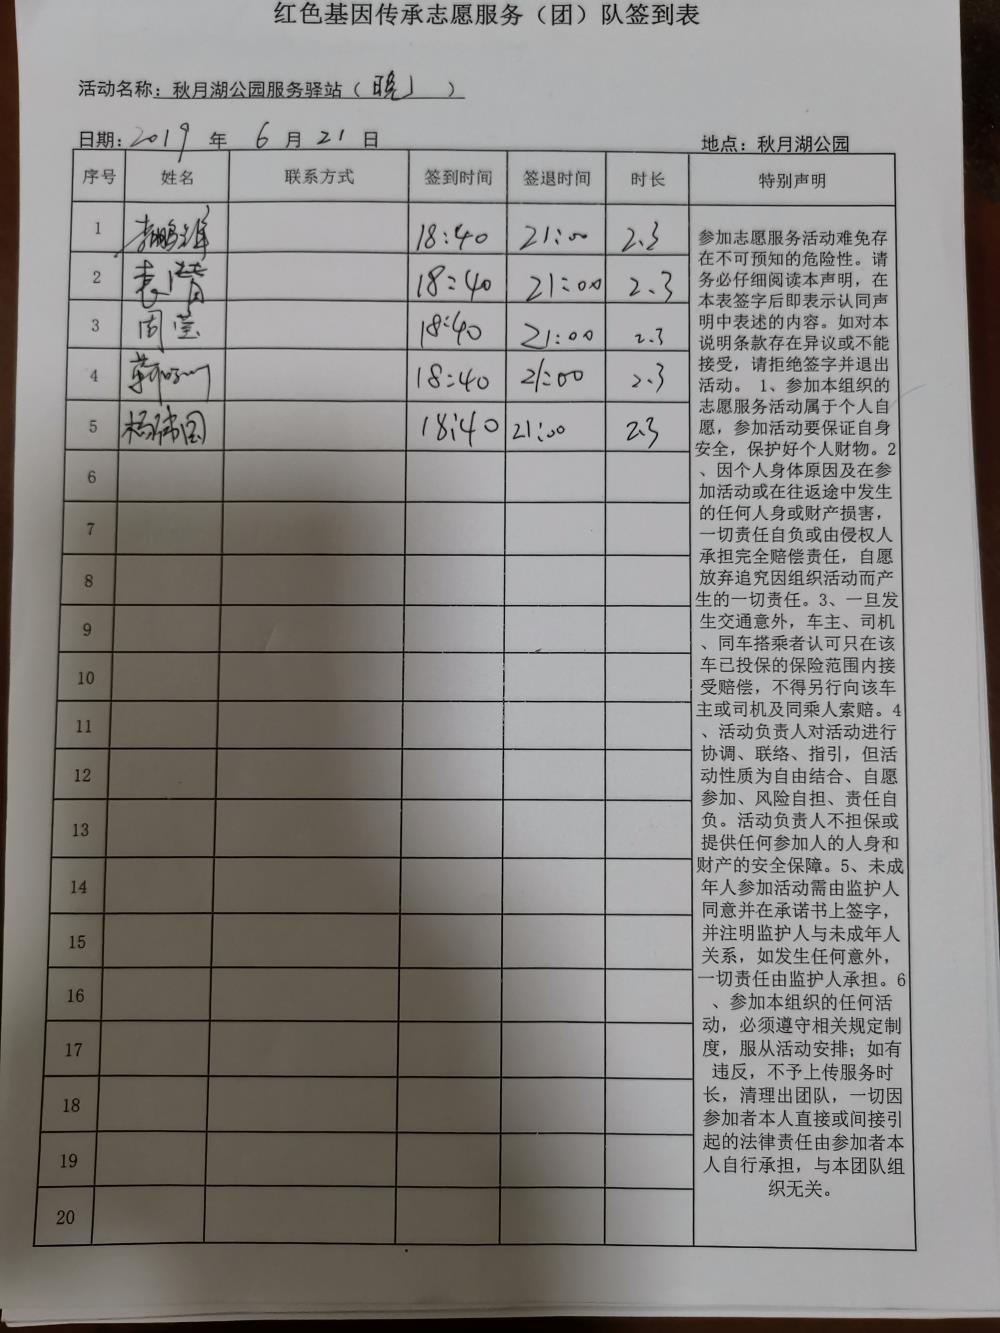 红色基因传承志愿服务（团）队签到表
活动名称：秋月湖公园服务驿站（晚上）
日期：2019 年 6 月 21 日 地点：秋月湖公园
序号 姓名 联系方式 签到时间 签退时间 时长 特别声明
1 18:40 21:00 2.3
2 18:40 21:00 2.3
3 周莹 18:40 21:00 2.3
4 18:40 21:00 2.3
5 杨伟国 18:40 21:00 2.3
6
7
8
9
10
11
12
13
14
15
16
17
18
19
20
参加志愿服务活动难免存
在不可预知的危险性。请
务必仔细阅读本声明，在
本表签字后即表示认同声
明中表述的内容。如对本
说明条款存在异议或不能
接受，请拒绝签字并退出
活动。 1、参加本组织的
志愿服务活动属于个人自
愿，参加活动要保证自身
安全，保护好个人财物。2
、因个人身体原因及在参
加活动或在往返途中发生
的任何人身或财产损害，
一切责任自负或由侵权人
承担完全赔偿责任，自愿
放弃追究因组织活动而产
生的一切责任。3、一旦发
生交通意外，车主、司机
、同车搭乘者认可只在该
车已投保的保险范围内接
受赔偿，不得另行向该车
主或司机及同乘人索赔。4
、活动负责人对活动进行
协调、联络、指引，但活
动性质为自由结合、自愿
参加、风险自担、责任自
负。活动负责人不担保或
提供任何参加人的人身和
财产的安全保障。5、未成
年人参加活动需由监护人
同意并在承诺书上签字，
并注明监护人与未成年人
关系，如发生任何意外，
一切责任由监护人承担。6
、参加本组织的任何活
动，必须遵守相关规定制
度，服从活动安排；如有
违反，不予上传服务时
长，清理出团队，一切因
参加者本人直接或间接引
起的法律责任由参加者本
人自行承担，与本团队组
织无关。